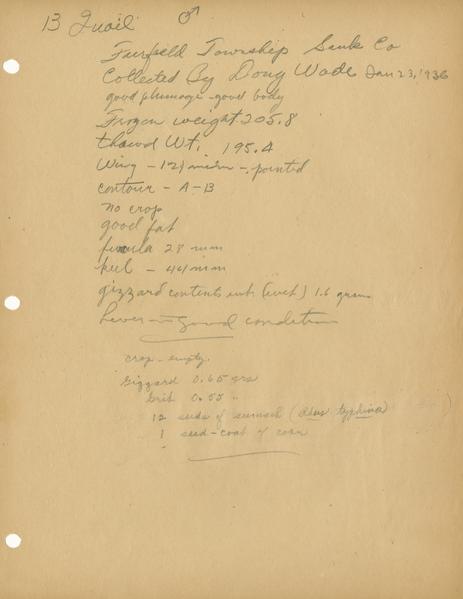 13 Quail ♂
Fairfield Township Sauk Co
Collected By Doug Wade Jan 23, 1936
good plumage - good body
Frozen weight 205.8
thawed Wt. 195.4
Wing - 121 m - pointed
contour - A-B
no crop
good fat
28 mm
keel - 44 mm
gizzard contents (wet) 1.6 grams
Liver - good condition
crop - empty.
Gizzard 0.65 grs
Grit 0.55 "
12 seeds of sumach (Rhus typhina)
1 seed-coat of corn